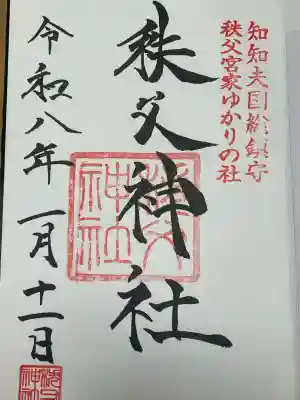 知知夫国総鎮守
秩父宮家ゆかりの社
秩父神社
令和八年一月十一日